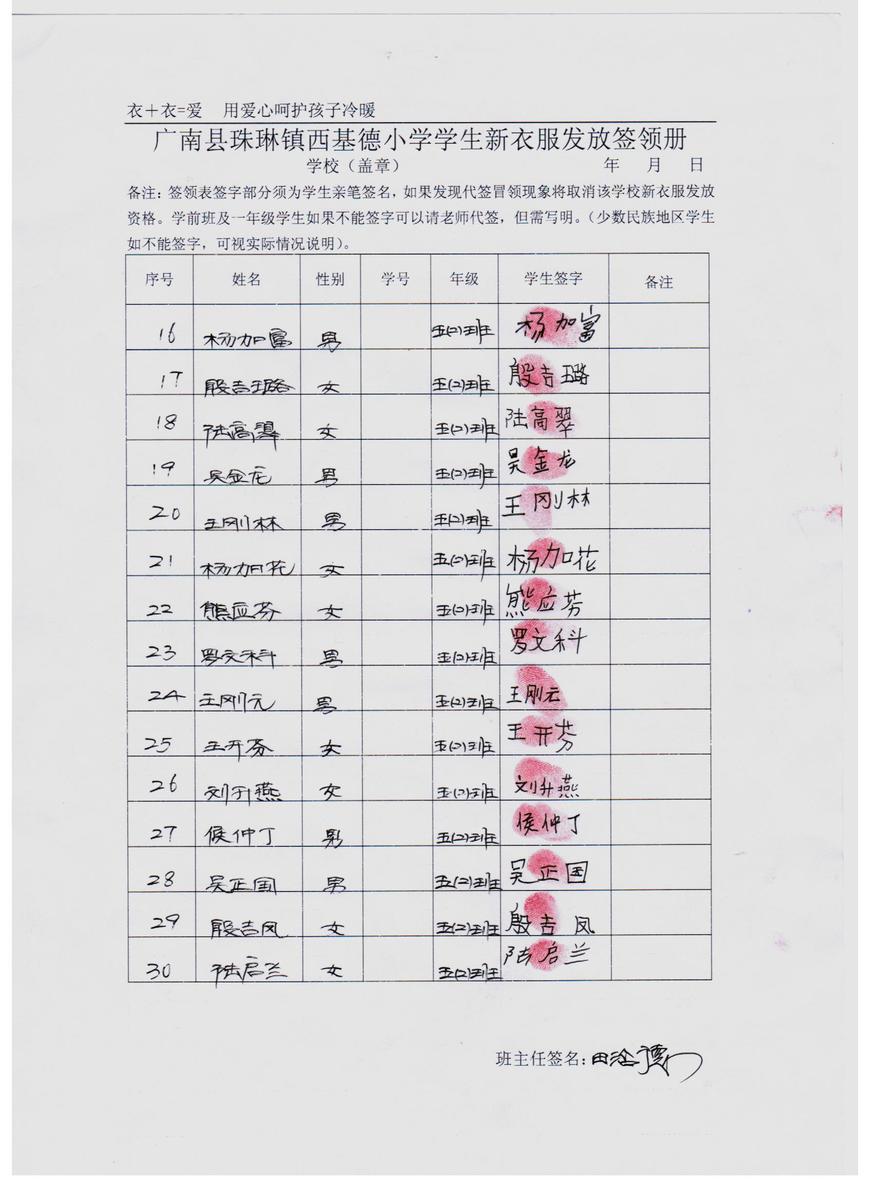 衣＋衣=爱 用爱心呵护孩子冷暖
广南县珠琳镇西基德小学学生新衣服发放签领册
学校（盖章） 年 月 日
备注：签领表签字部分须为学生亲笔签名，如果发现代签冒领现象将取消该学校新衣服发放
资格。学前班及一年级学生如果不能签字可以请老师代签，但需写明。（少数民族地区学生
如不能签字，可视实际情况说明）。
序号 姓名 性别 学号 年级 学生签字 备注
16 杨加富 男 五(2)班 杨加富
17 殷吉璐 女 五(2)班 殷吉璐
18 陆高翠 女 五(2)班 陆高翠
19 吴金龙 男 五(2)班 吴金龙
20 王刚林 男 五(2)班 王刚林
21 杨加花 女 五(2)班 杨加花
22 熊应芬 女 五(2)班 熊应芬
23 罗文科 男 五(2)班 罗文科
24 王刚元 男 五(2)班 王刚元
25 王开芬 女 五(2)班 王开芬
26 刘升燕 女 五(2)班 刘升燕
27 侯仲丁 男 五(2)班 侯仲丁
28 吴正国 男 五(2)班 吴正国
29 殷吉凤 女 五(2)班 殷吉凤
30 陆启兰 女 五(2)班 陆启兰
班主任签名：田